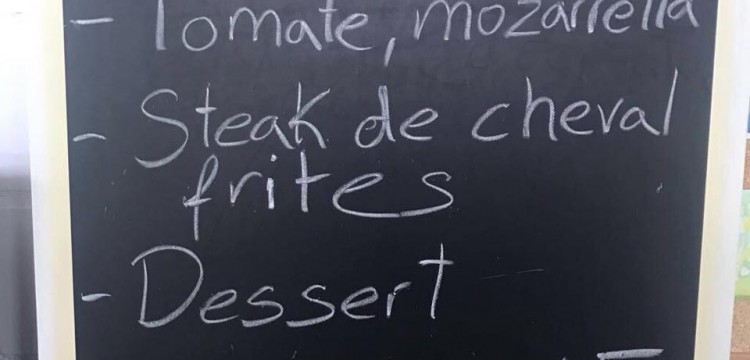 - Tomate, mozarrella
- Steak de cheval
frites
- Dessert